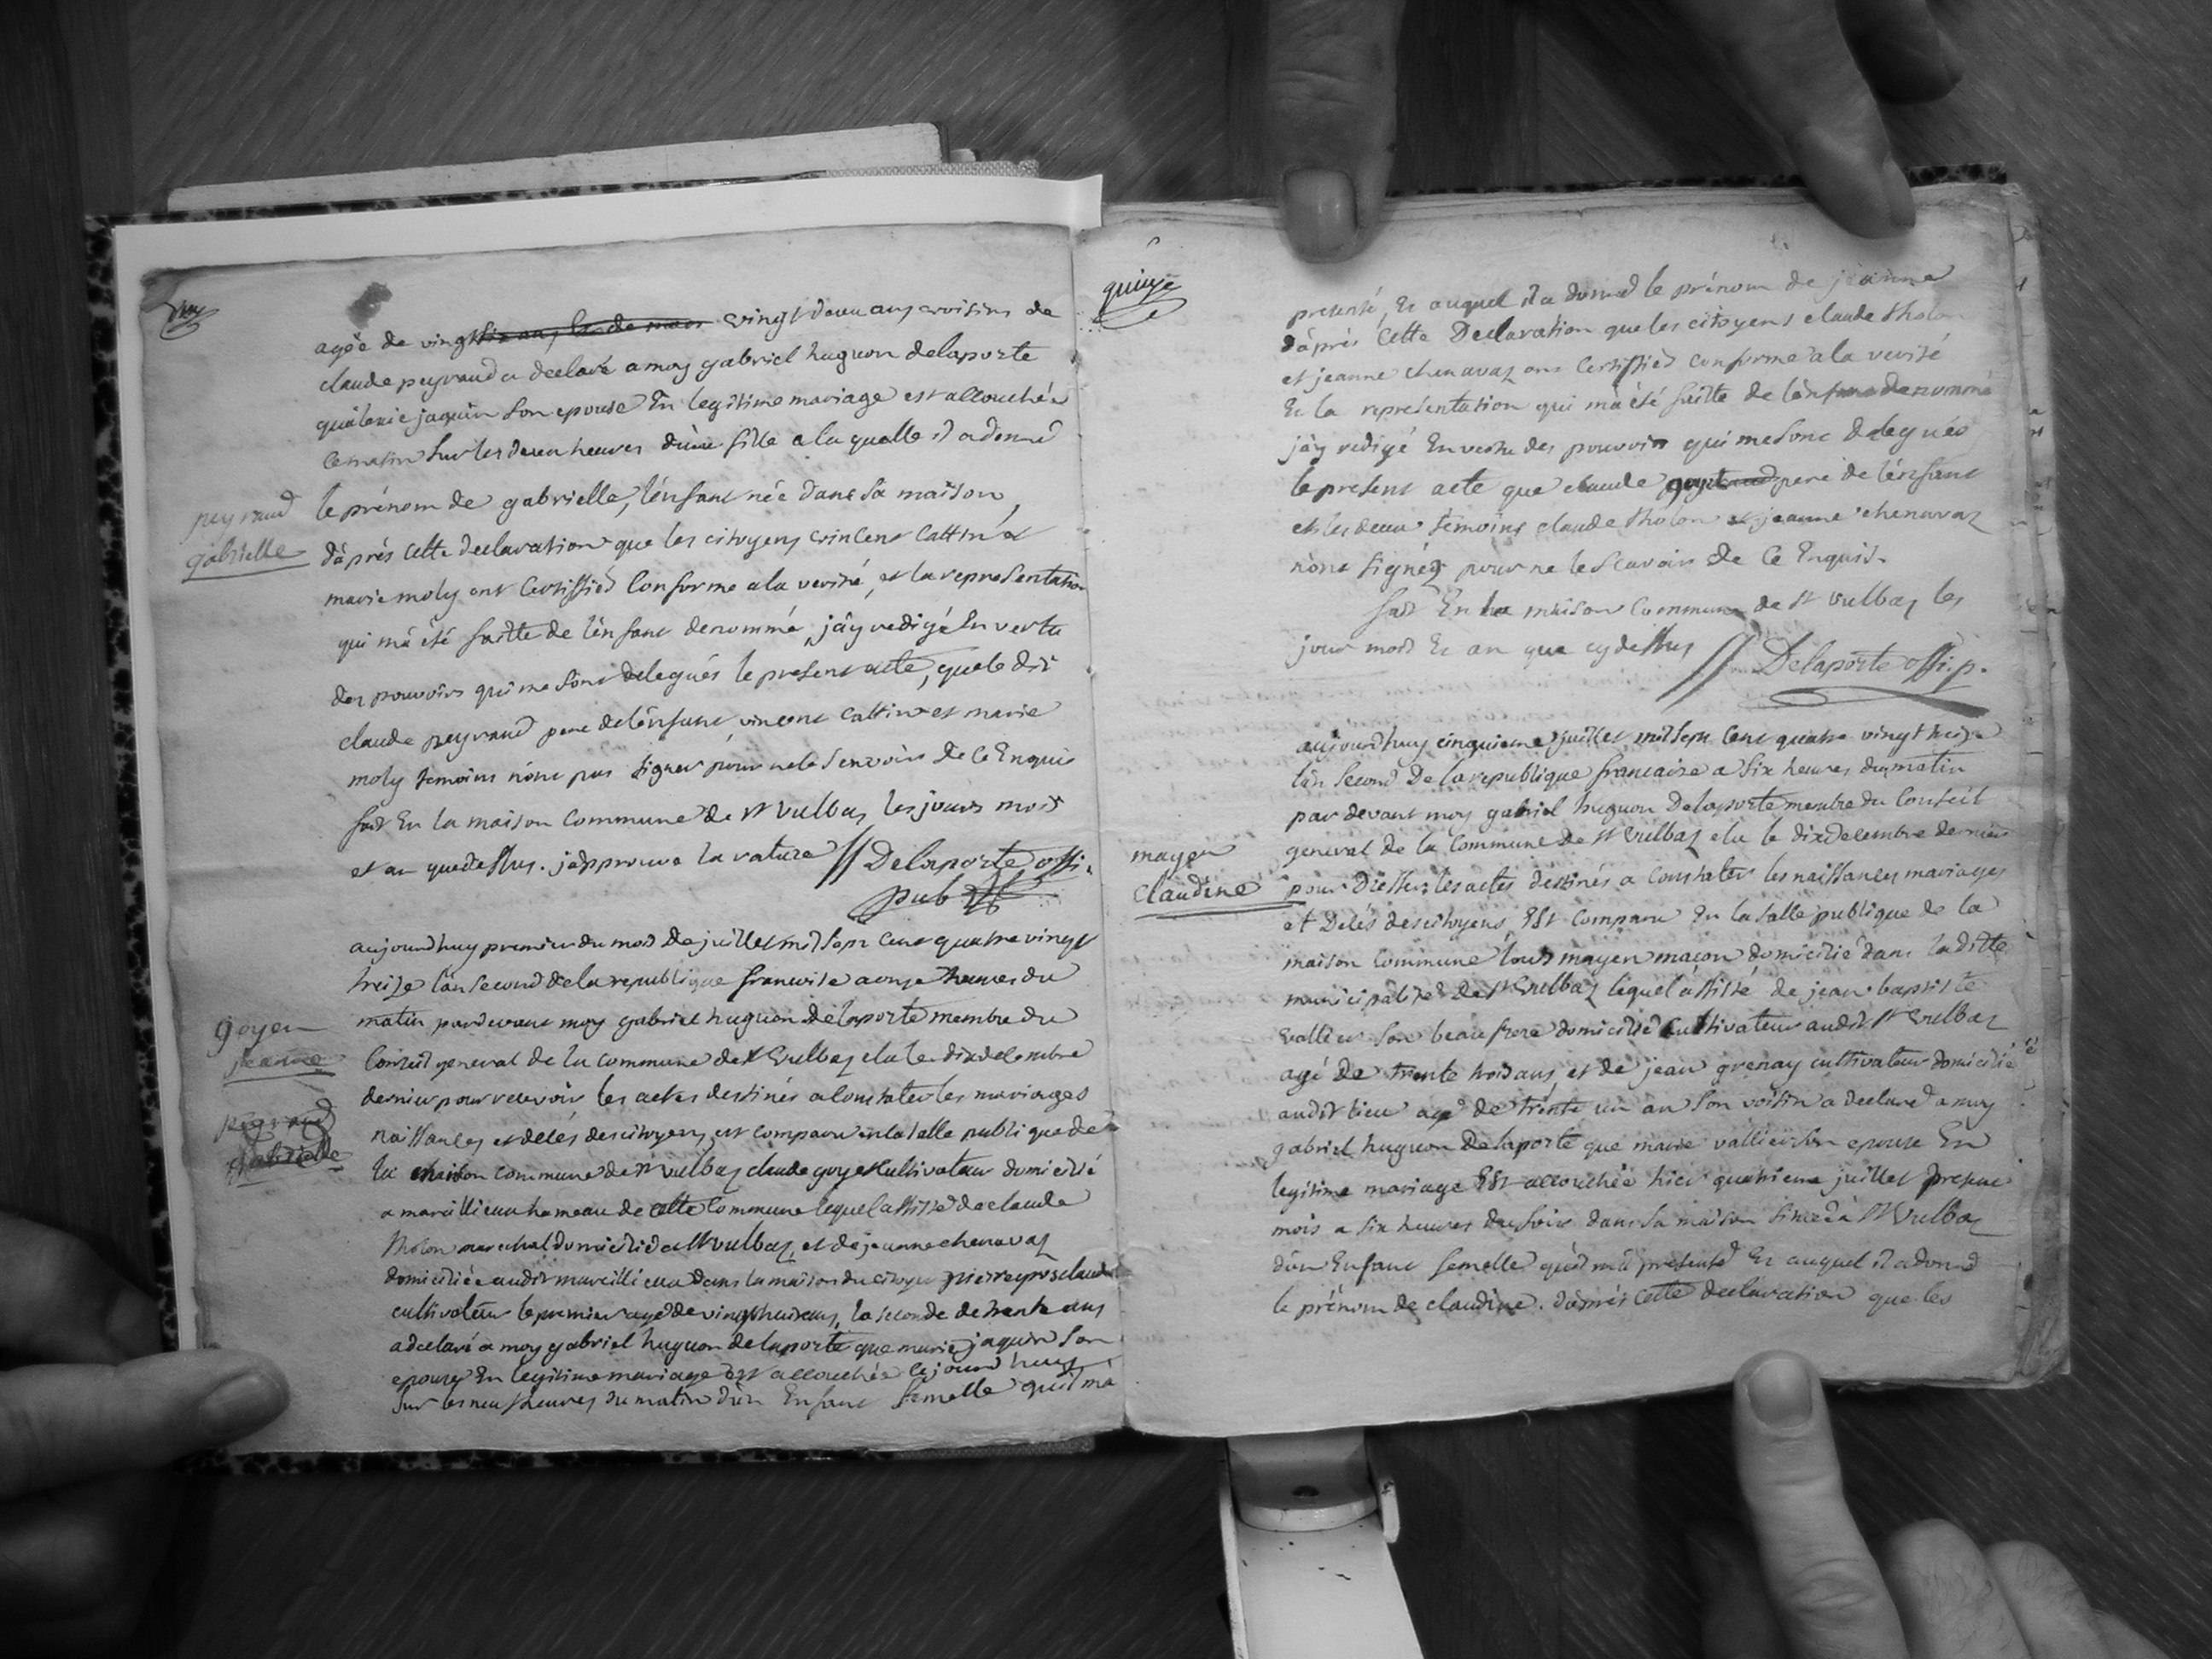 agée de vingt six ans, la de mere vingt deux ans voisins de
claude peyraud a declaré a moy gabriel huguon delaporte
jaquin son epouse En legitime mariage est accouchée
ce matin sur les deux heures d'une fille a la quelle il a donné
peyraud
gabrielle
le prénom de gabrielle, l'énfant née dans sa maison,
d'aprés cette declaration que les citoyens vincent cattin et
marie moly ont certiffié conforme a la verité, et la representation
qui m'a été faitte de l'énfant denommé, j'ay redigé En vertu
des pouvoirs qui me sont delegués le present acte, que le dit
claude peyraud pere de l'énfant, vincent cattin et marie
moly temoins n'ont pas signer pour ne le scavoir de ce Enquis
fait En la maison commune de st vulbaz les jours mois
et an que dessus. j'approuve la rature // Delaporte offi.
pub
aujourdhuy premier du mois de juillet mil sept cent quatre vingt
treize l'an second de la republique francoise a onze heures du
goyen
jeanne
peyraud
gabrielle
matin pardevant moy gabriel huguon delaporte membre du
Conseil general de la commune de st vulbaz elu le dix decembre
dernier pour recevoir les actes destinés a constater les mariages
naissances et decés des citoyens est comparu en la salle publique de
la maison commune de st vulbaz claude goyet cultivateur domicilié
a marcillieux hameau de cette commune lequel assisté de claude
tholon marechal domicilié a st vulbaz, et de jeanne chenavaz
domiciliée audit marcillieux dans la maison du citoyen pierre
cultivateur le premier agé de vingt huit ans, la seconde de trente ans
a declaré a moy gabriel huguon delaporte que marie jaquin son
epouse En legitime mariage Est accouchée ce jourd'huy
sur les neuf heures du matin d'un Enfant femelle qu'il m'a
quinze
presenté, Et auquel il a donné le prénom de jeanne
d'aprés cette Declaration que les citoyens claude tholon
et jeanne chenavaz ont certiffié conforme a la verité
Et la representation qui m'a été faitte de l'énfant denommé
j'ay redigé En vertu des pouvoirs qui me sont delegués
le present acte que claude pere de l'énfant
et les deux témoins claude tholon et jeanne chenavaz
n'ont signéz pour ne le scavoir de ce Enquis.
fait En la maison commune de st vulbaz les
jour mois Et an que cy dessus // Delaporte offi.p.
aujourdhuy cinquieme juillet mil sept cent quatre vingt treize
l'an second De la republique francaise a six heures du matin
par devant moy gabriel huguon Delaporte membre du Conseil
general de la commune de st vulbaz elu le dix decembre dernier
mayen
claudine
pour Dresser les actes destinés a constater les naissances mariages
et Decés des citoyens, Est comparu En la salle publique de la
maison commune louis mayen maçon domicilié dans laditte
municipalité de st vulbaz lequel assisté de jean baptiste
vallier son beau frere domicilié cultivateur audit st vulbaz
agé de trente trois ans, et de jean grenay cultivateur domicilié
audit lieu agé de trente un an son voisin a declaré a moy
gabriel huguon Delaporte que marie vallier son epouse En
legitime mariage Est accouchée hier quatrieme juillet present
mois a six heures du soir dans sa maison située a st vulbaz
d'un Enfant femelle qu'il m'a presenté Et auquel il a donné
le prénom de claudine. d'aprés cette declaration que les